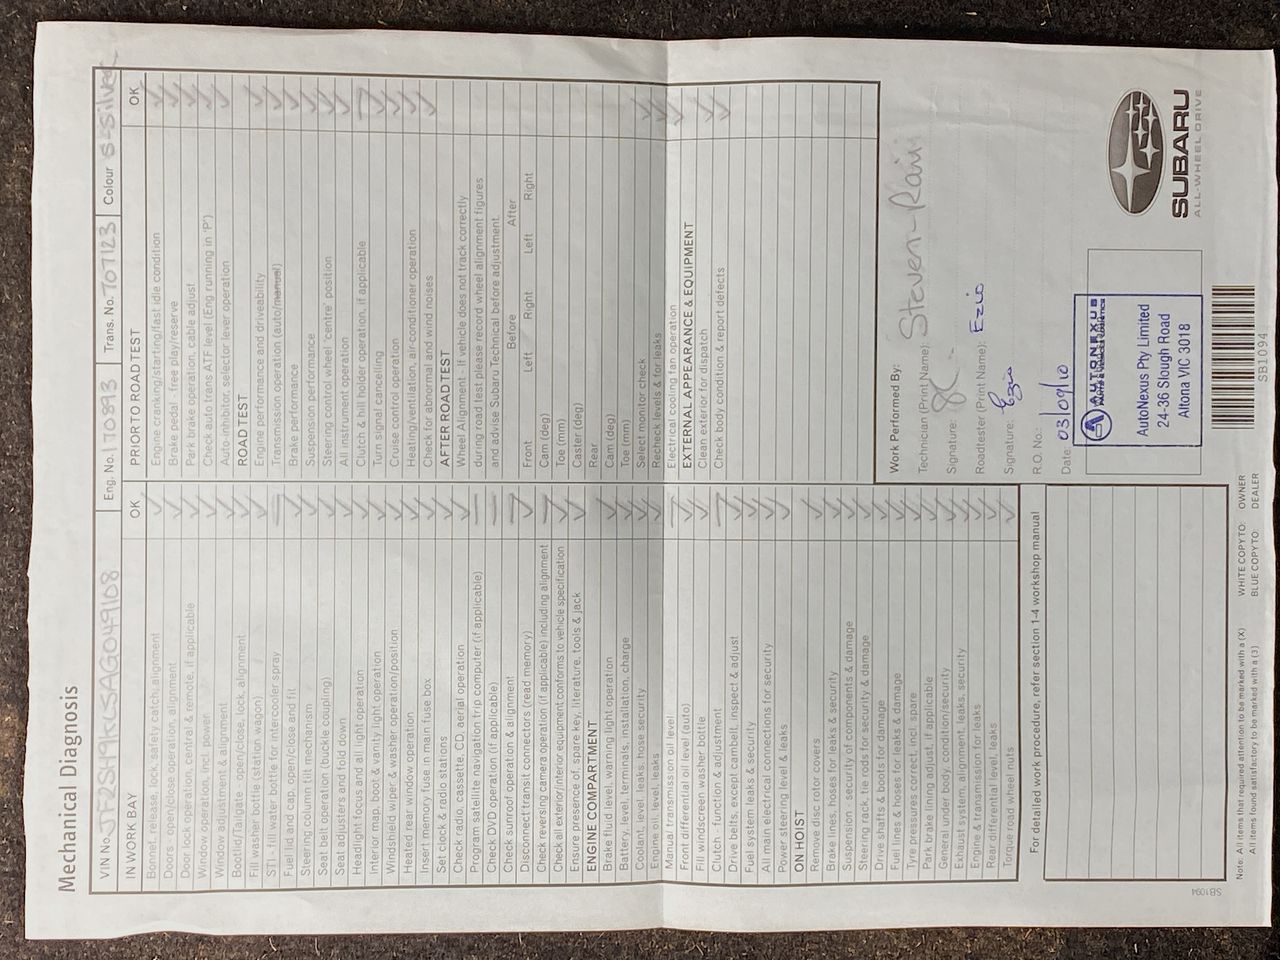 Mechanical Diagnosis
VIN No. JF2SH9KLSAG049108 Eng. No. 170893 Trans. No. 707123 Colour S-Silver
IN WORK BAY OK
Bonnet, release, lock, safety catch, alignment
Doors - open/close operation, alignment
Door lock operation, central & remote, if applicable
Window operation, incl power
Window adjustment & alignment
Bootlid/Tailgate - open/close, lock, alignment
Fill washer bottle (station wagon)
STi - fill water bottle for intercooler spray
Fuel lid and cap, open/close and fit
Steering column tilt mechanism
Seat belt operation (buckle coupling)
Seat adjusters and fold down
Headlight focus and all light operation
Interior map, boot & vanity light operation
Windshield wiper & washer operation/position
Heated rear window operation
Insert memory fuse in main fuse box
Set clock & radio stations
Check radio, cassette, CD, aerial operation
Program satellite navigation trip computer (if applicable)
Check DVD operation (if applicable)
Check sunroof operation & alignment
Disconnect transit connectors (read memory)
Check reversing camera operation (if applicable) including alignment
Check all exterior/interior equipment conforms to vehicle specification
Ensure presence of, spare key, literature, tools & jack
ENGINE COMPARTMENT
Brake fluid level, warning light operation
Battery, level, terminals, installation, charge
Coolant, level, leaks, hose security
Engine oil, level, leaks
Manual transmission oil level
Front differential oil level (auto)
Fill windscreen washer bottle
Clutch - function & adjustment
Drive belts, except cambelt, inspect & adjust
Fuel system leaks & security
All main electrical connections for security
Power steering level & leaks
ON HOIST
Remove disc rotor covers
Brake lines, hoses for leaks & security
Suspension - security of components & damage
Steering rack, tie rods for security & damage
Drive shafts & boots for damage
Fuel lines & hoses for leaks & damage
Tyre pressures correct, incl. spare
Park brake lining adjust, if applicable
General under body, condition/security
Exhaust system, alignment, leaks, security
Engine & transmission for leaks
Rear differential level, leaks
Torque road wheel nuts
For detailed work procedure, refer section 1-4 workshop manual
PRIOR TO ROADTEST OK
Engine cranking/starting/fast idle condition
Brake pedal - free play/reserve
Park brake operation, cable adjust
Check auto trans ATF level (Eng running in 'P')
Auto-inhibitor, selector lever operation
ROADTEST
Engine performance and driveability
Transmission operation (auto/manual)
Brake performance
Suspension performance
Steering control wheel 'centre' position
All instrument operation
Clutch & hill holder operation, if applicable
Turn signal cancelling
Cruise control operation
Heating/ventilation, air-conditioner operation
Check for abnormal and wind noises
AFTER ROAD TEST
Wheel Alignment - If vehicle does not track correctly
during road test please record wheel alignment figures
and advise Subaru Technical before adjustment.
Before After
Front Left Right Left Right
Cam (deg)
Toe (mm)
Caster (deg)
Rear
Cam (deg)
Toe (mm)
Select monitor check
Recheck levels & for leaks
Electrical cooling fan operation
EXTERNAL APPEARANCE & EQUIPMENT
Clean exterior for dispatch
Check body condition & report defects
Work Performed By:
Technician (Print Name): Steven-Rain
Signature:
Roadtester (Print Name): Ezio
Signature: Ezio
R.O. No.:
Date: 03/09/10
AUTONEXUS
AutoNexus Pty Limited
24-36 Slough Road
Altona VIC 3018
SUBARU
ALL-WHEEL DRIVE
SB1094
Note: All items that required attention to be marked with a (X)
All items found satisfactory to be marked with a (3)
WHITE COPY TO: OWNER
BLUE COPY TO: DEALER
SB1094